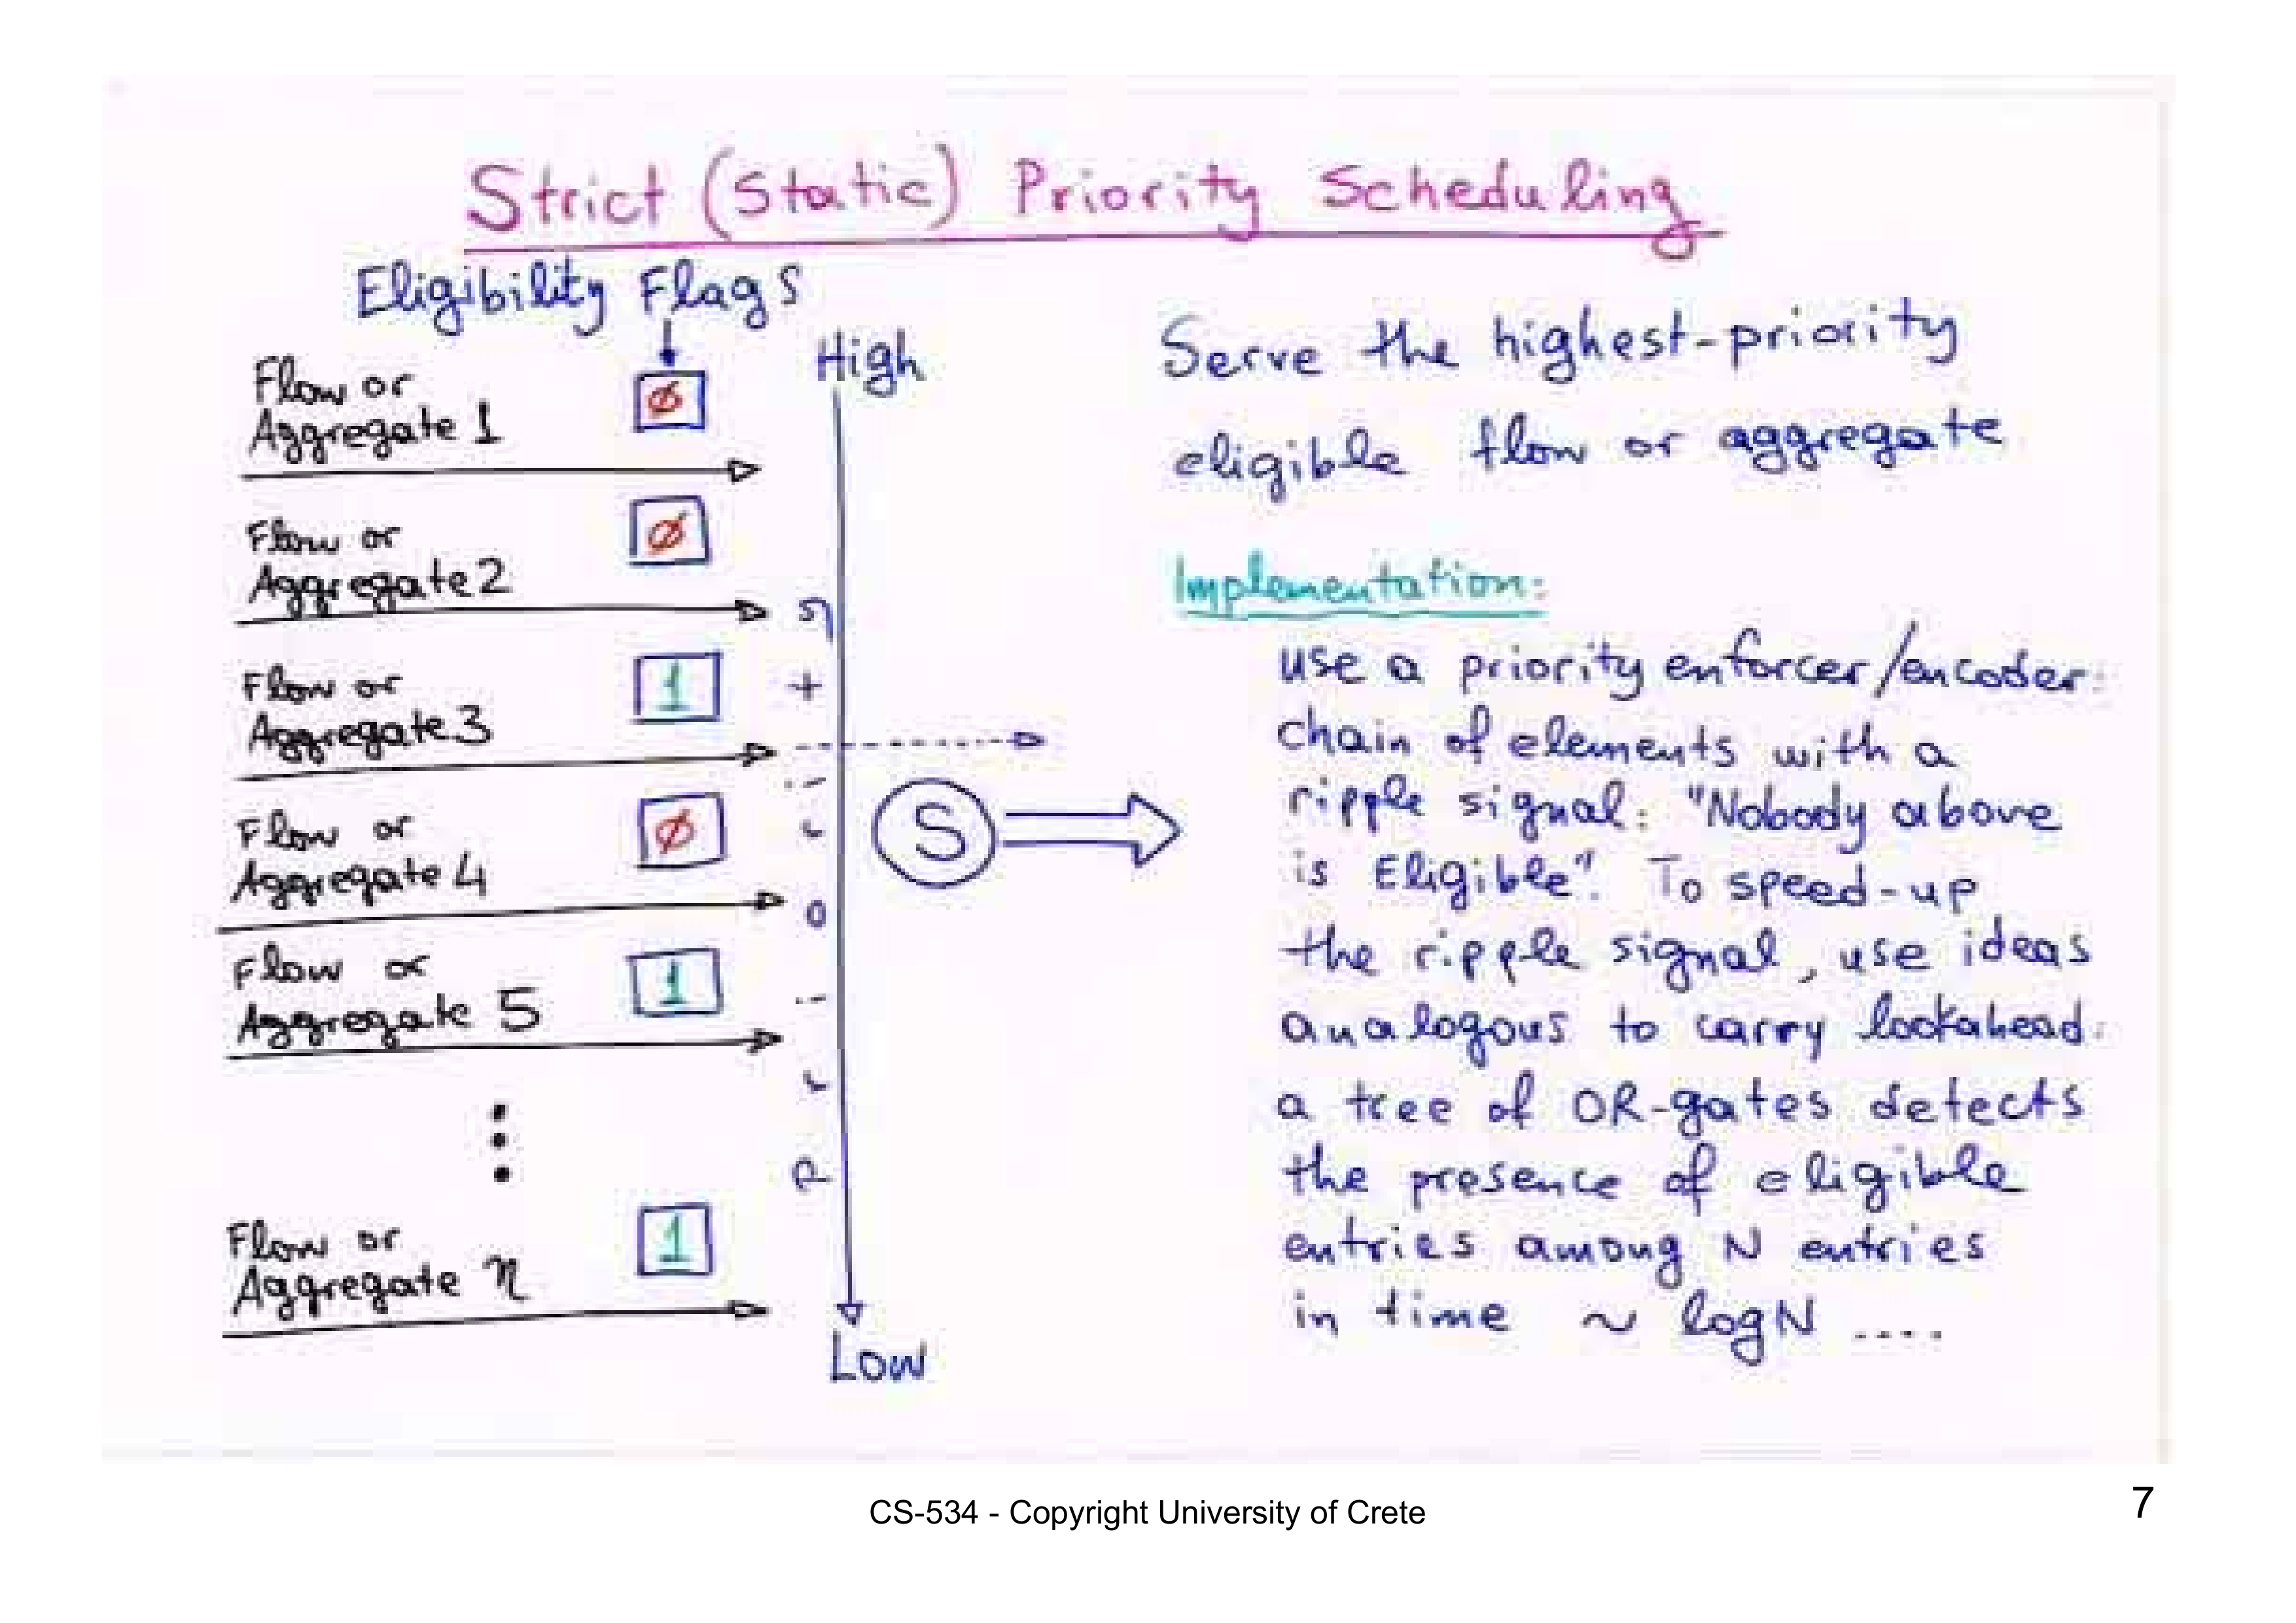 Strict (Static) Priority Scheduling
Eligibility Flags
High
Flow or
Aggregate 1
Ø
Flow or
Aggregate 2
Ø
Flow or
Aggregate 3
1
Flow or
Aggregate 4
Ø
Flow or
Aggregate 5
1
Flow or
Aggregate n
1
Priority
Low
S
Serve the highest-priority
eligible flow or aggregate
Implementation:
use a priority enforcer/encoder:
chain of elements with a
ripple signal: "Nobody above
is Eligible". To speed-up
the ripple signal, use ideas
analogous to carry lookahead:
a tree of OR-gates detects
the presence of eligible
entries among N entries
in time ~ logN ....
CS-534 - Copyright University of Crete
7